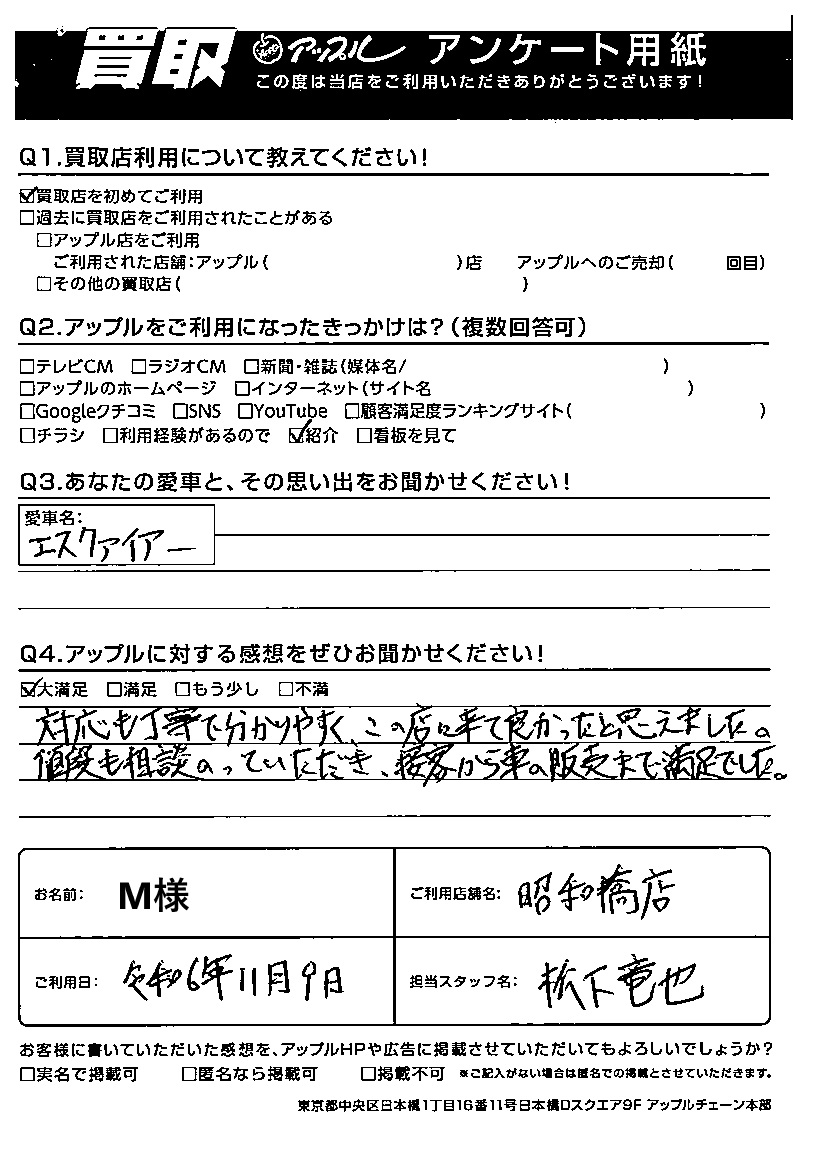 買取 アップル アンケート用紙
この度は当店をご利用いただきありがとうございます!
Q1.買取店利用について教えてください!
☑買取店を初めてご利用
□過去に買取店をご利用されたことがある
□アップル店をご利用
ご利用された店舗:アップル( )店 アップルへのご売却( 回目)
□その他の買取店( )
Q2.アップルをご利用になったきっかけは?(複数回答可)
□テレビCM □ラジオCM □新聞・雑誌(媒体名/ )
□アップルのホームページ □インターネット(サイト名 )
□Googleクチコミ □SNS □YouTube □顧客満足度ランキングサイト( )
□チラシ □利用経験があるので ☑紹介 □看板を見て
Q3.あなたの愛車と、その思い出をお聞かせください!
愛車名:
エスクァイアー
Q4.アップルに対する感想をぜひお聞かせください!
☑大満足 □満足 □もう少し □不満
対応も丁寧で分かりやすく、この店に来て良かったと思えました。
値段も相談のっていただき、接客から車の販売まで満足でした。
お名前: M様 ご利用店舗名: 昭和橋店
ご利用日: 令和6年11月9日 担当スタッフ名: 松下竜也
お客様に書いていただいた感想を、アップルHPや広告に掲載させていただいてもよろしいでしょうか?
□実名で掲載可 □匿名なら掲載可 □掲載不可 ※ご記入がない場合は匿名での掲載とさせていただきます。
東京都中央区日本橋1丁目16番11号日本橋Dスクエア9F アップルチェーン本部